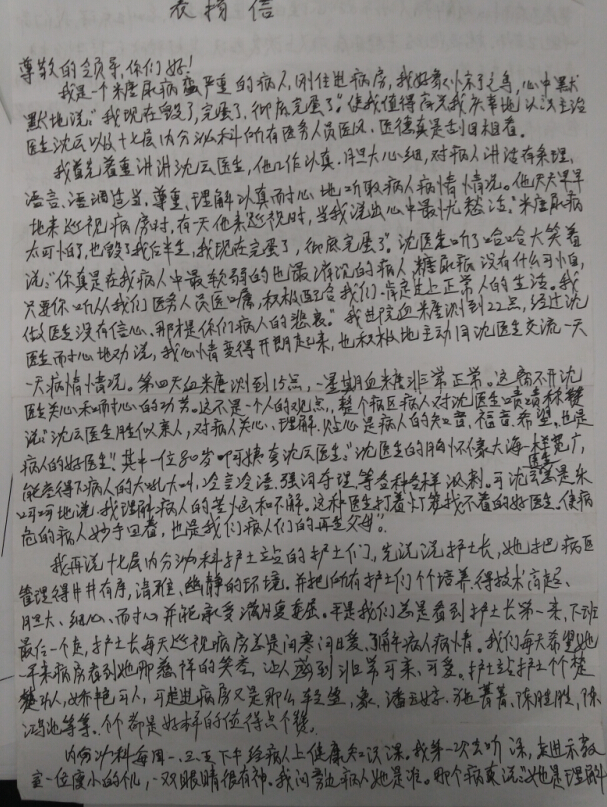 表扬信
尊敬的领导，你们好！
我是一个糖尿病蛮严重的病人，刚住进病房，我好象怀了之寺，心中默
默地说：“我现在毁了，完蛋了，彻底完蛋了”使我值得庆兄我庆幸地认识主治
医生沈云以及十七层内分泌科所有医务人员医风、医德真是刮目相看。
我首先着重讲讲沈云医生，他工作认真，胆大心细，对病人讲话有条理，
语言、语调适当，尊重、理解认真而耐心地听取病人病情情况。他天天早早
地来巡视病房时，有天他来巡视时，当我说出心中最忧愁话：“糖尿病
太可怕了，也毁了我后半生，我现在完蛋了，彻底完蛋了”。沈医生听了哈哈大笑着
说：“你真是在我病人中最软弱的也最消沉的病人，糖尿病没有什么可怕，
只要你听从我们医务人员医嘱，积极配合我们，肯定过上正常人的生活。我
做医生没有信心、那才是你们病人的悲哀。”我进院血糖测到22点，经过沈
医生耐心地劝说，我心情变得开朗起来，也积极地主动同沈医生交流一天
一天病情情况。第四天血糖测到15点，一星期血糖非常正常。这离不开沈
医生关心和耐心的功劳。这不是一个人的观点，整个病区病人对沈医生啧啧称赞
说：“沈云医生胜似亲人，对病人关心、理解、贴心是病人的知音、福音、希望，也是
病人的好医生”其中一位80岁啊姨夸沈云医生：“沈医生的胸怀像大海一样宽广，
能容得下病人的大吼大叫，冷言冷语，强词夺理，等各种各样讽刺。可沈云医生总是笑
呵呵地说我理解病人的苦恼和不解。这种医生打着灯笼找不着的好医生。使病
危的病人妙手回春，也是我们病人们的再生父母”。
我再说十七层内分泌科护士站的护士们，先说说护士长，她把病区
管理得井井有序，清雅、幽静的环境。并把所有护士们个个培养得技术高超、
胆大、细心、而耐心并能承受满负重荷。平是我们总是看到护士长第一来，下班
最后一个走，护士长每天巡视病房总是问寒问暖，了解病人病情。我们每天希望她
早来病房看到她那慈祥的笑容，让人感到非常可亲、可爱。护士站护士个个楚
楚动人，娇艳可人，可走进病房又是那么轻盈，象、潘玉婷、施菁菁、陈胜胜、陈
鸿艳等等，个个都是好样的值得点个赞。
内分泌科每周一、三、五下午给病人上健康知识课。我第一次去听课，走进示教
室一位瘦小的个儿，一双眼睛很有神。我问旁边病人她是谁。那个病友说：“她是理解